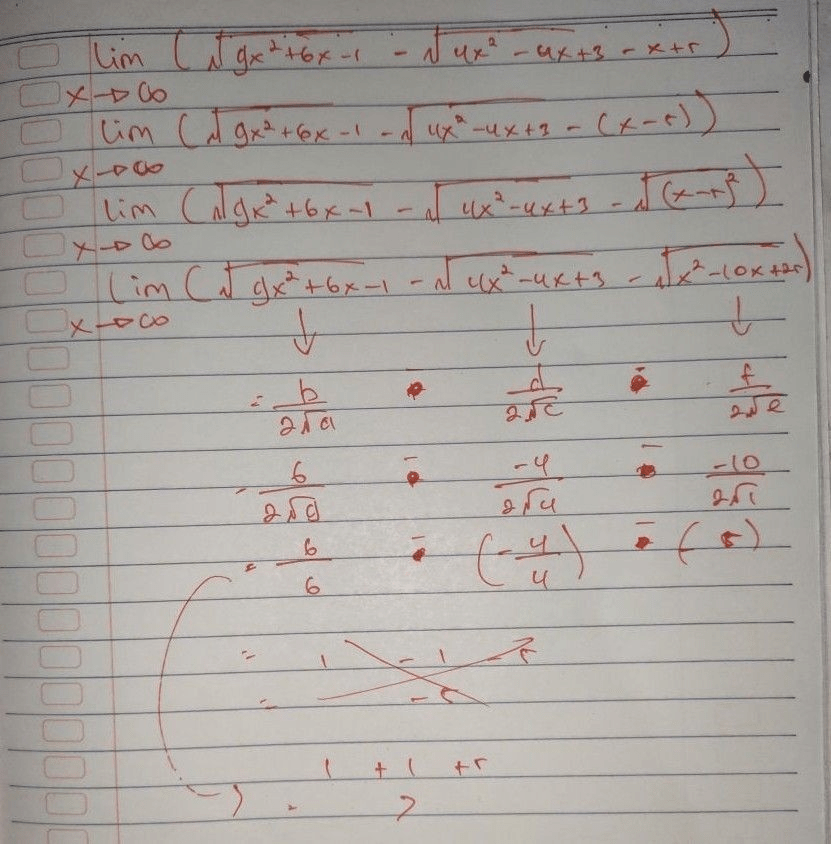 lim (√9x²+6x-1 - √4x²-4x+3 - x+5)
x→∞
lim (√9x²+6x-1 - √4x²-4x+3 - (x-5))
x→∞
lim (√9x²+6x-1 - √4x²-4x+3 - √(x-5)²)
x→∞
lim (√9x²+6x-1 - √4x²-4x+3 - √x²-10x+25)
x→∞
= b/2√a - d/2√c - f/2√e
= 6/2√9 - -4/2√4 - -10/2√1
= 6/6 - (-4/4) - (-5)
= 1 - 1 - 5
= -5
1 + 1 + 5
= 7